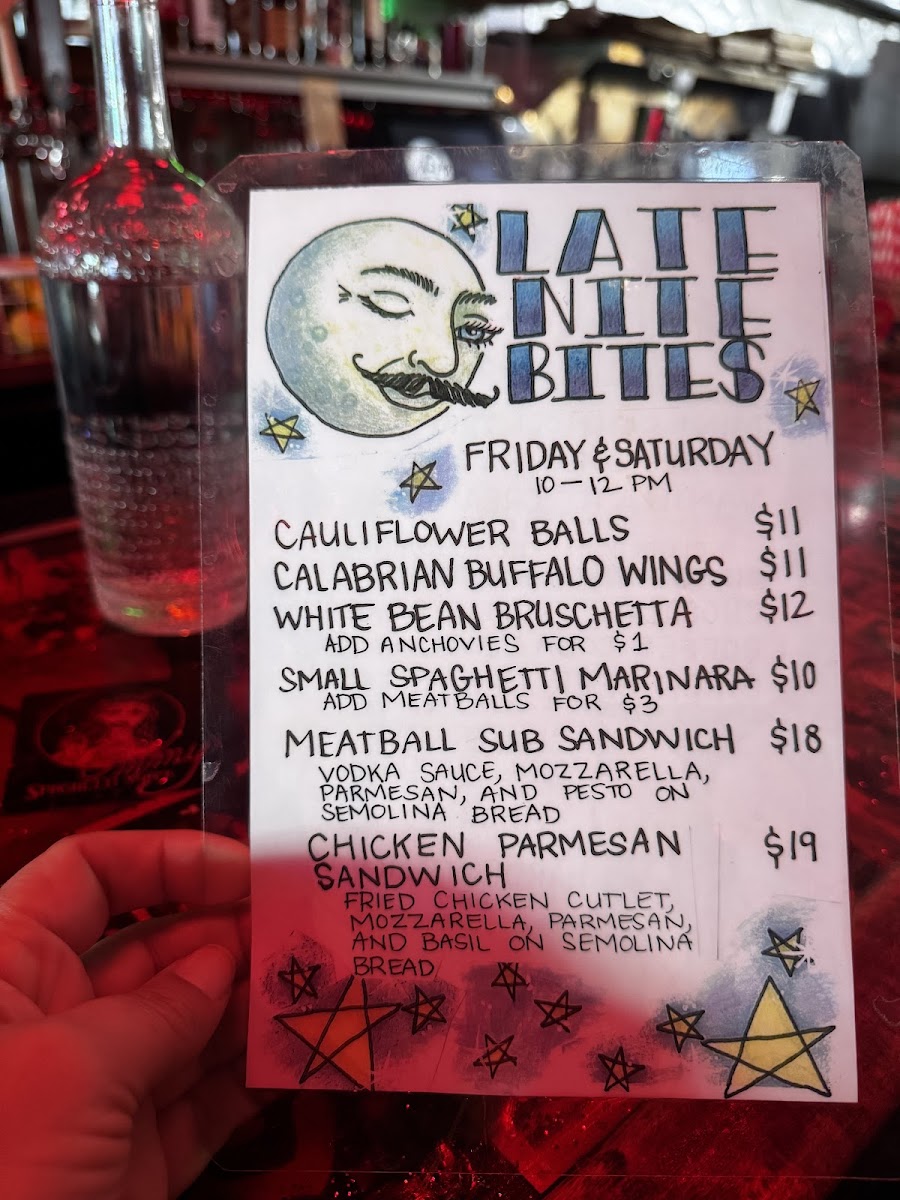 LATE
NITE
BITES
FRIDAY & SATURDAY
10 — 12 PM
CAULIFLOWER BALLS $11
CALABRIAN BUFFALO WINGS $11
WHITE BEAN BRUSCHETTA $12
ADD ANCHOVIES FOR $1
SMALL SPAGHETTI MARINARA $10
ADD MEATBALLS FOR $3
MEATBALL SUB SANDWICH $18
VODKA SAUCE, MOZZARELLA,
PARMESAN, AND PESTO ON
SEMOLINA BREAD
CHICKEN PARMESAN $19
SANDWICH
FRIED CHICKEN CUTLET,
MOZZARELLA, PARMESAN,
AND BASIL ON SEMOLINA
BREAD
SPAGHETTI